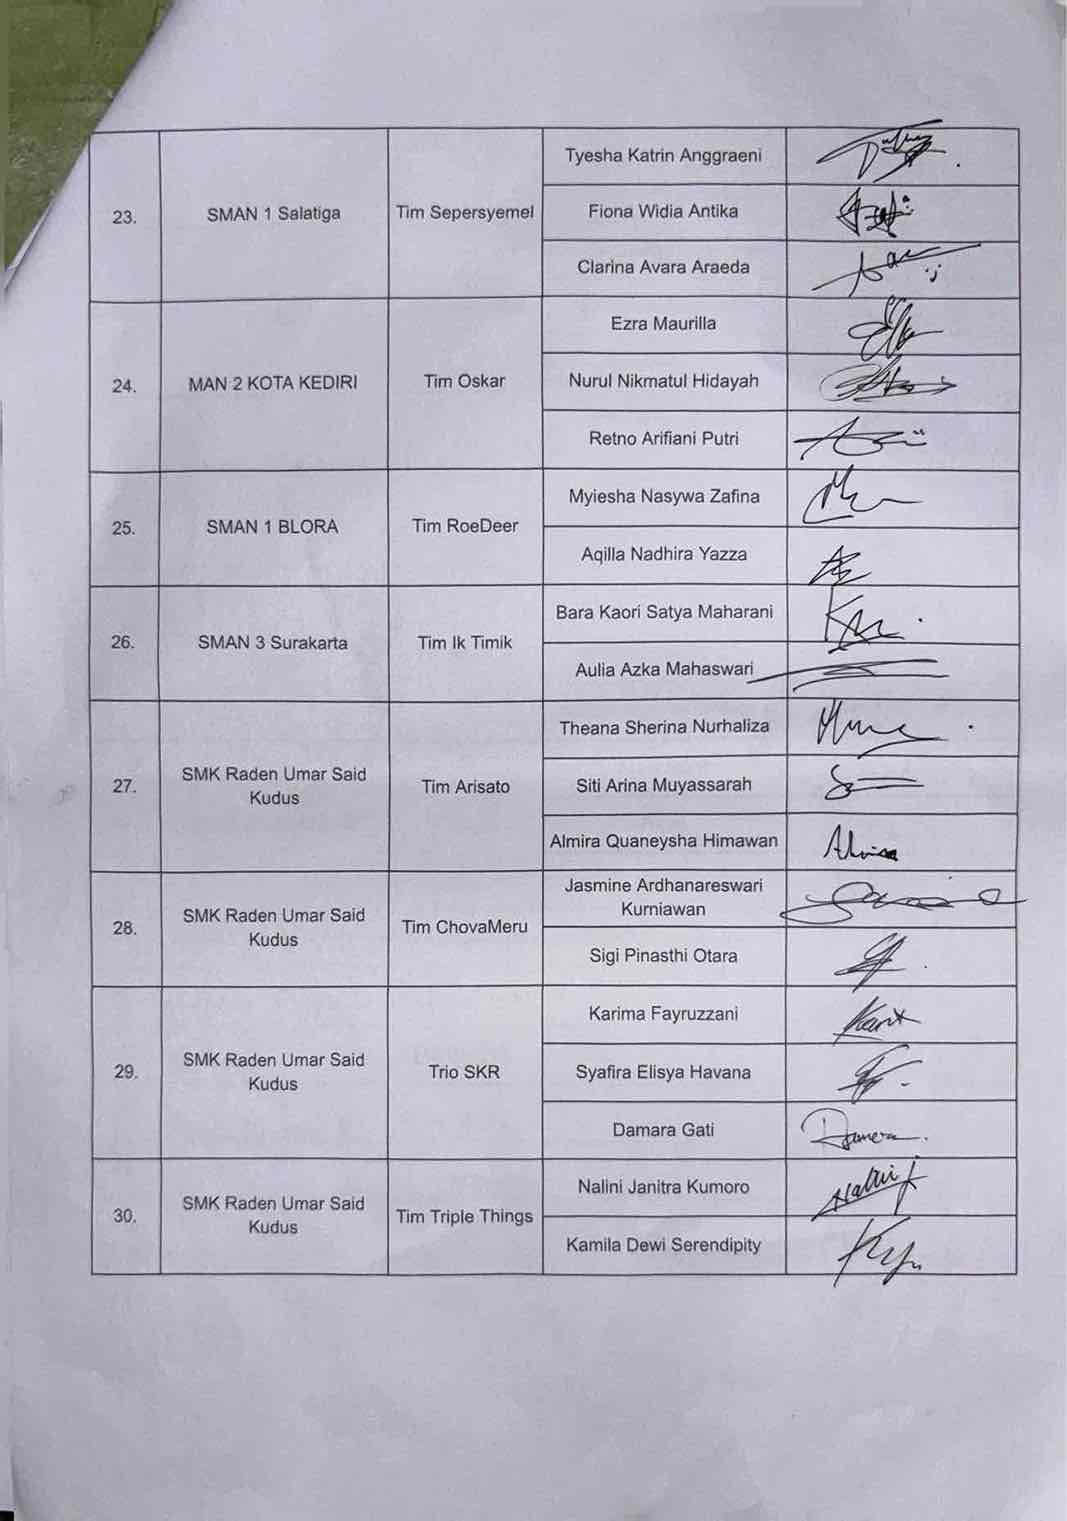 23.
SMAN 1 Salatiga
Tim Sepersyemel
Tyesha Katrin Anggraeni
Fiona Widia Antika
Clarina Avara Araeda
24.
MAN 2 KOTA KEDIRI
Tim Oskar
Ezra Maurilla
Nurul Nikmatul Hidayah
Retno Arifiani Putri
25.
SMAN 1 BLORA
Tim RoeDeer
Myiesha Nasywa Zafina
Aqilla Nadhira Yazza
26.
SMAN 3 Surakarta
Tim Ik Timik
Bara Kaori Satya Maharani
Aulia Azka Mahaswari
27.
SMK Raden Umar Said
Kudus
Tim Arisato
Theana Sherina Nurhaliza
Siti Arina Muyassarah
Almira Quaneysha Himawan
28.
SMK Raden Umar Said
Kudus
Tim ChovaMeru
Jasmine Ardhanareswari
Kurniawan
Sigi Pinasthi Otara
29.
SMK Raden Umar Said
Kudus
Trio SKR
Karima Fayruzzani
Syafira Elisya Havana
Damara Gati
30.
SMK Raden Umar Said
Kudus
Tim Triple Things
Nalini Janitra Kumoro
Kamila Dewi Serendipity